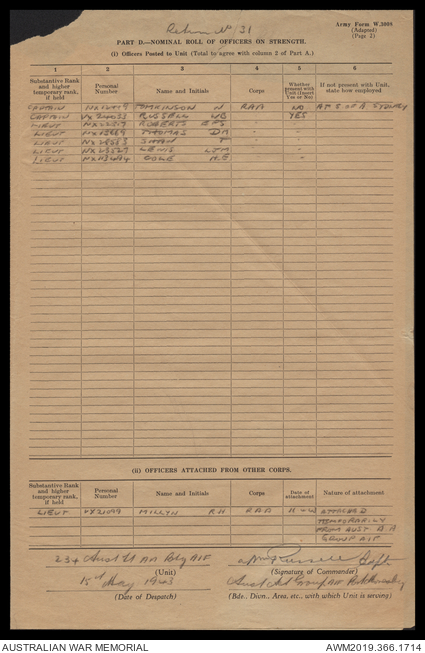 Return No 31
Army Form W.3008
(Adapted)
(Page 2)
PART D.—NOMINAL ROLL OF OFFICERS ON STRENGTH.
(i) Officers Posted to Unit (Total to agree with column 2 of Part A.)
1 2 3 4 5 6
Substantive Rank and higher temporary rank, if held
Personal Number
Name and Initials
Corps
Whether present with Unit (Insert Yes or No)
If not present with Unit, state how employed
CAPTAIN TOMKINSON N RAA NO AT S OF A. SYDNEY
CAPTAIN RUSSELL WB " YES
LIEUT ROBERTS EFS " "
LIEUT THOMAS DM " "
LIEUT " "
LIEUT LEWIS LTM " "
LIEUT COLE H.E " "
(ii) OFFICERS ATTACHED FROM OTHER CORPS.
Substantive Rank and higher temporary rank, if held
Personal Number
Name and Initials
Corps
Date of attachment
Nature of attachment
LIEUT VX21099 MILLYN R H RAA ATTACHED
TEMPORARILY
FROM AUST A.A
GROUP AIF
234 Aust Lt AA Bty AIF
(Unit)
Russell Capt
(Signature of Commander)
15th May 1943
(Date of Despatch)
(Bde., Divn., Area, etc., with which Unit is serving)
AUSTRALIAN WAR MEMORIAL
AWM2019.366.1714